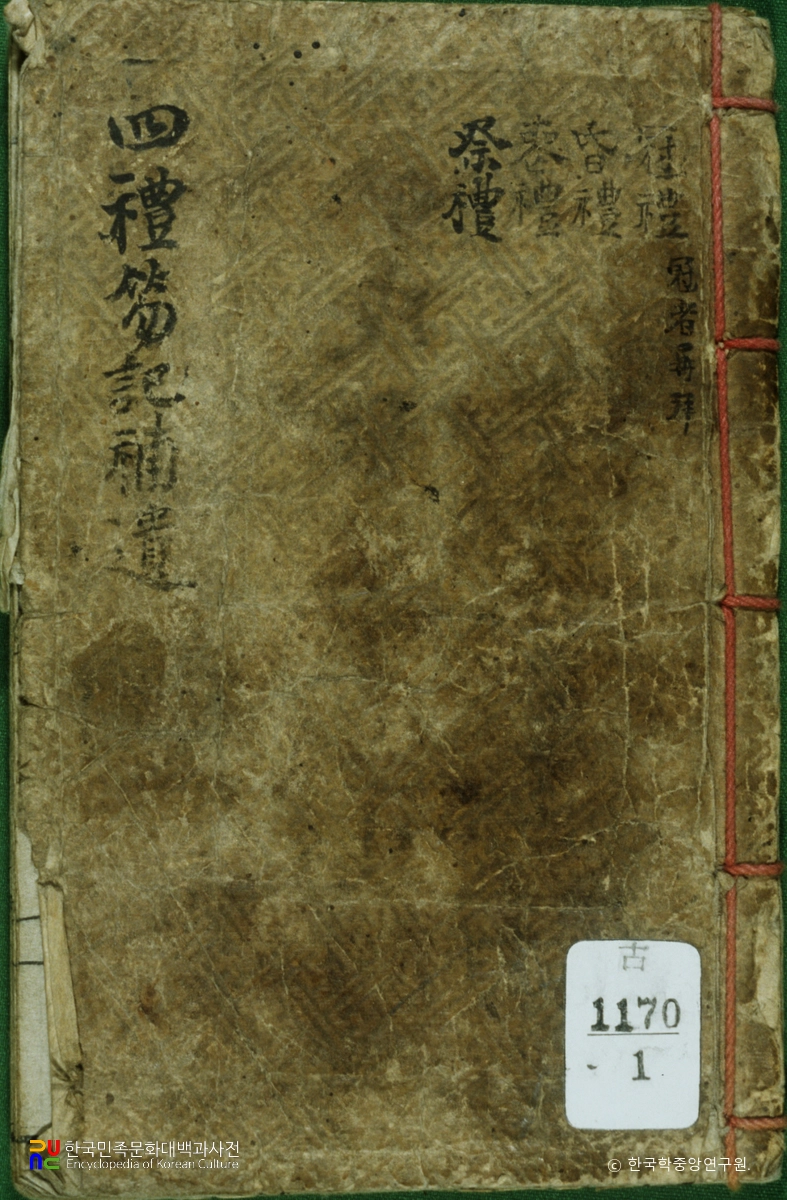 冠禮
昏禮
喪禮
祭禮
冠者再拜
四禮笏記補遺
古
1170
1
한국민족문화대백과사전
Encyclopedia of Korean Culture
© 한국학중앙연구원